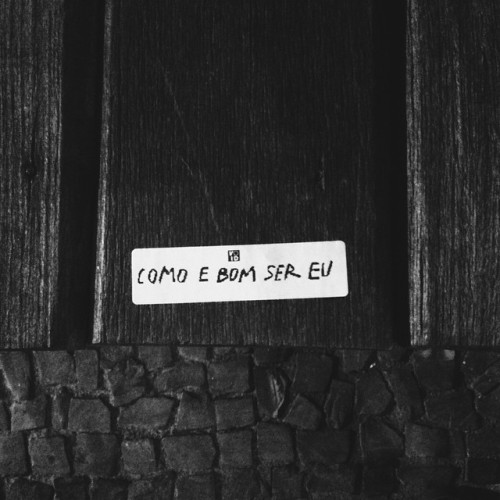 COMO E BOM SER EU